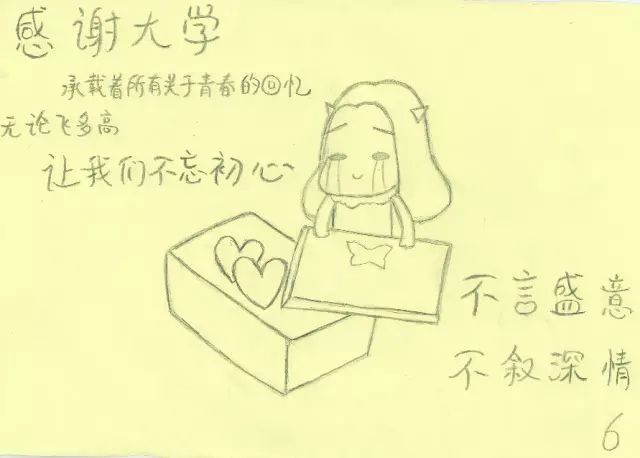 感谢大学
承载着所有关于青春的回忆
无论飞多高
让我们不忘初心
不言盛意
不叙深情
6